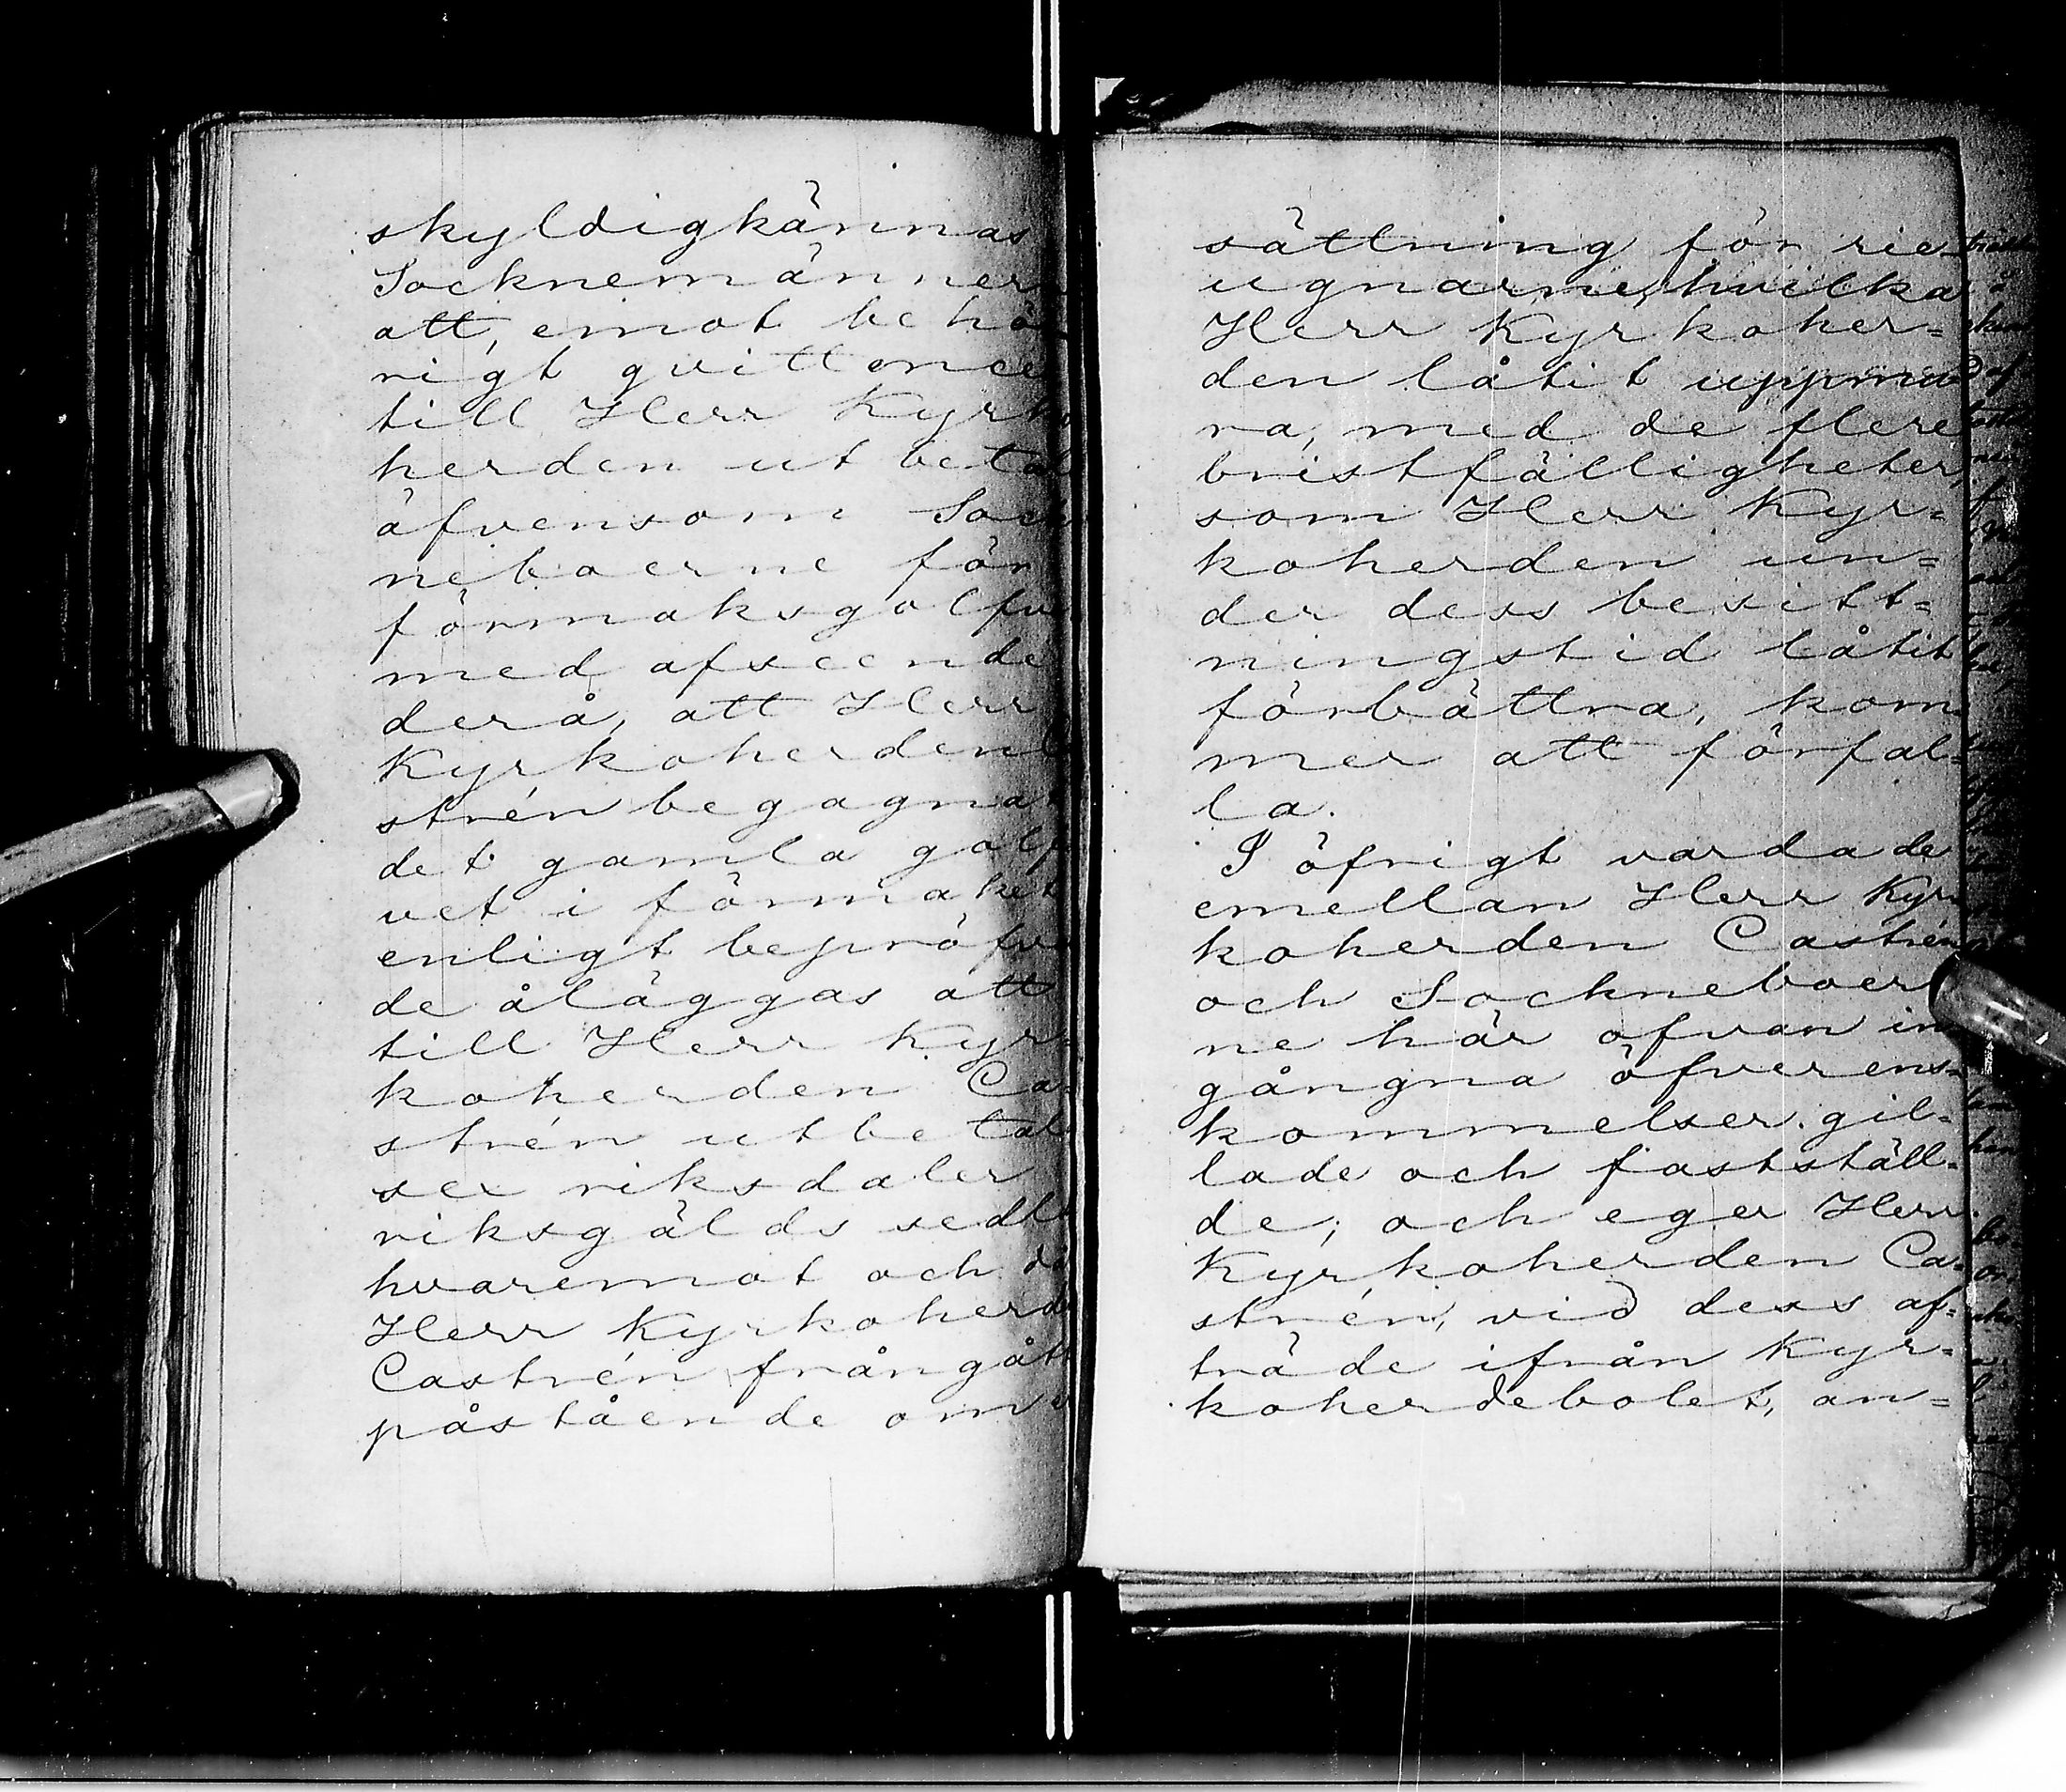 skyldigkännas
Socknemänner
att, emot behö
rigt qvittence
till Herr Kyrko
herden utbetal
äfvensom Sock
neboerne för
förmaksgolfve
med afseende
derå, att Herr
Kyrkoherden
strén begagna
det gamla golf
vet i förmaket
enligt bepröfvan
de åläggas att
till Herr Kyr-
koherden Ca-
strén utbetal
sex riksdaler
riksgälds sedl
hvaremot och då
Herr Kyrkoherde
Castrén frångått
påstående om
sättning för rie-
ugnarne, hvilka
Herr Kyrkoher=
den låtit uppmu
ra, med de flere
bristfälligheter,
som Herr Kyr=
koherden un=
der dess besitt=
ningstid låtit
förbättra, kom=
mer att förfal=
la.
I öfrigt varda de
emellan Herr Kyr
koherden Castrén
och Sockneboer
ne här ofvan in
gångna öfverens=
kommelser gil=
lade och fastställ=
de; och eger Herr
Kyrkoherden Ca=
strén, vid dess af=
träde ifrån Kyr=
koherdebolet, an=